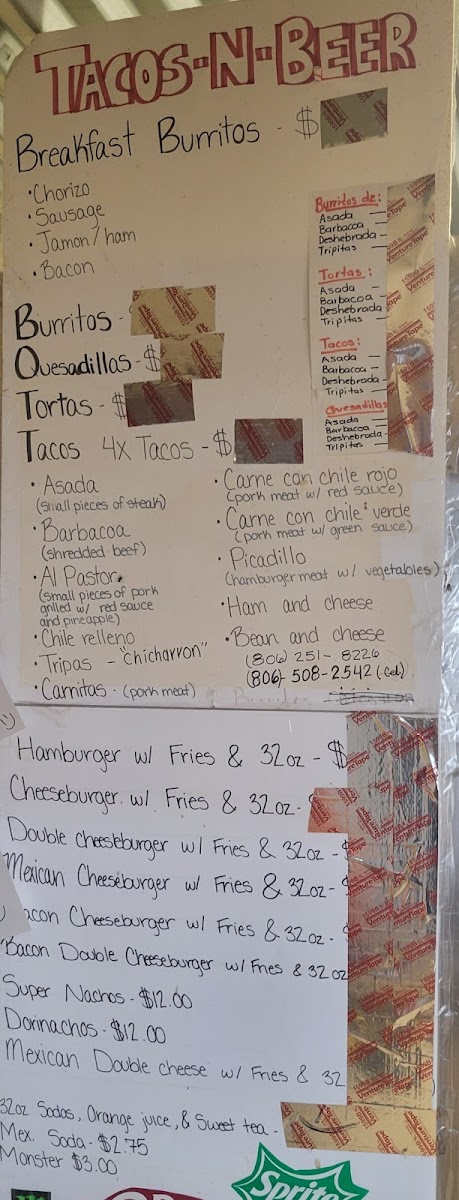 TACOS-N-BEER
Breakfast Burritos - $
• Chorizo
• Sausage
• Jamon/ham
• Bacon
Burritos de:
Asada —
Barbacoa —
Deshebrada —
Tripitas —
Tortas:
Asada —
Barbacoa —
Deshebrada
Tripitas
Tacos:
Asada —
Barbacoa —
Deshebrada -
Tripitas —
Quesadillas
Asada —
Barbacoa —
Deshebrada -
Tripitas
Burritos -
Quesadillas - $
Tortas - $
Tacos 4x Tacos - $
• Asada
(small pieces of steak)
• Barbacoa
(shredded beef)
• Al Pastor
(small pieces of pork
grilled w/ red sauce
and pineapple)
• Chile relleno
• Tripas - "chicharron"
• Carnitas - (pork meat)
• Carne con chile rojo
(pork meat w/ red sauce)
• Carne con chile verde
(pork meat w/ green sauce)
• Picadillo
(hamburger meat w/ vegetables)
• Ham and cheese
• Bean and cheese
(806) 251-8226
(806)-508-2542 (cel)
Hamburger w/ Fries & 32oz - $
Cheeseburger w/ Fries & 32oz -
Double cheeseburger w/ Fries & 32oz - $
Mexican Cheeseburger w/ Fries & 32oz - $
acon Cheeseburger w/ Fries & 32oz - $
Bacon Double Cheeseburger w/ Fries & 32oz
Super Nachos - $12.00
Dorinachos - $12.00
Mexican Double cheese w/ Fries & 32
32oz Sodas, Orange juice, & Sweet tea -
Mex. Soda - $2.75
Monster $3.00
Sprite